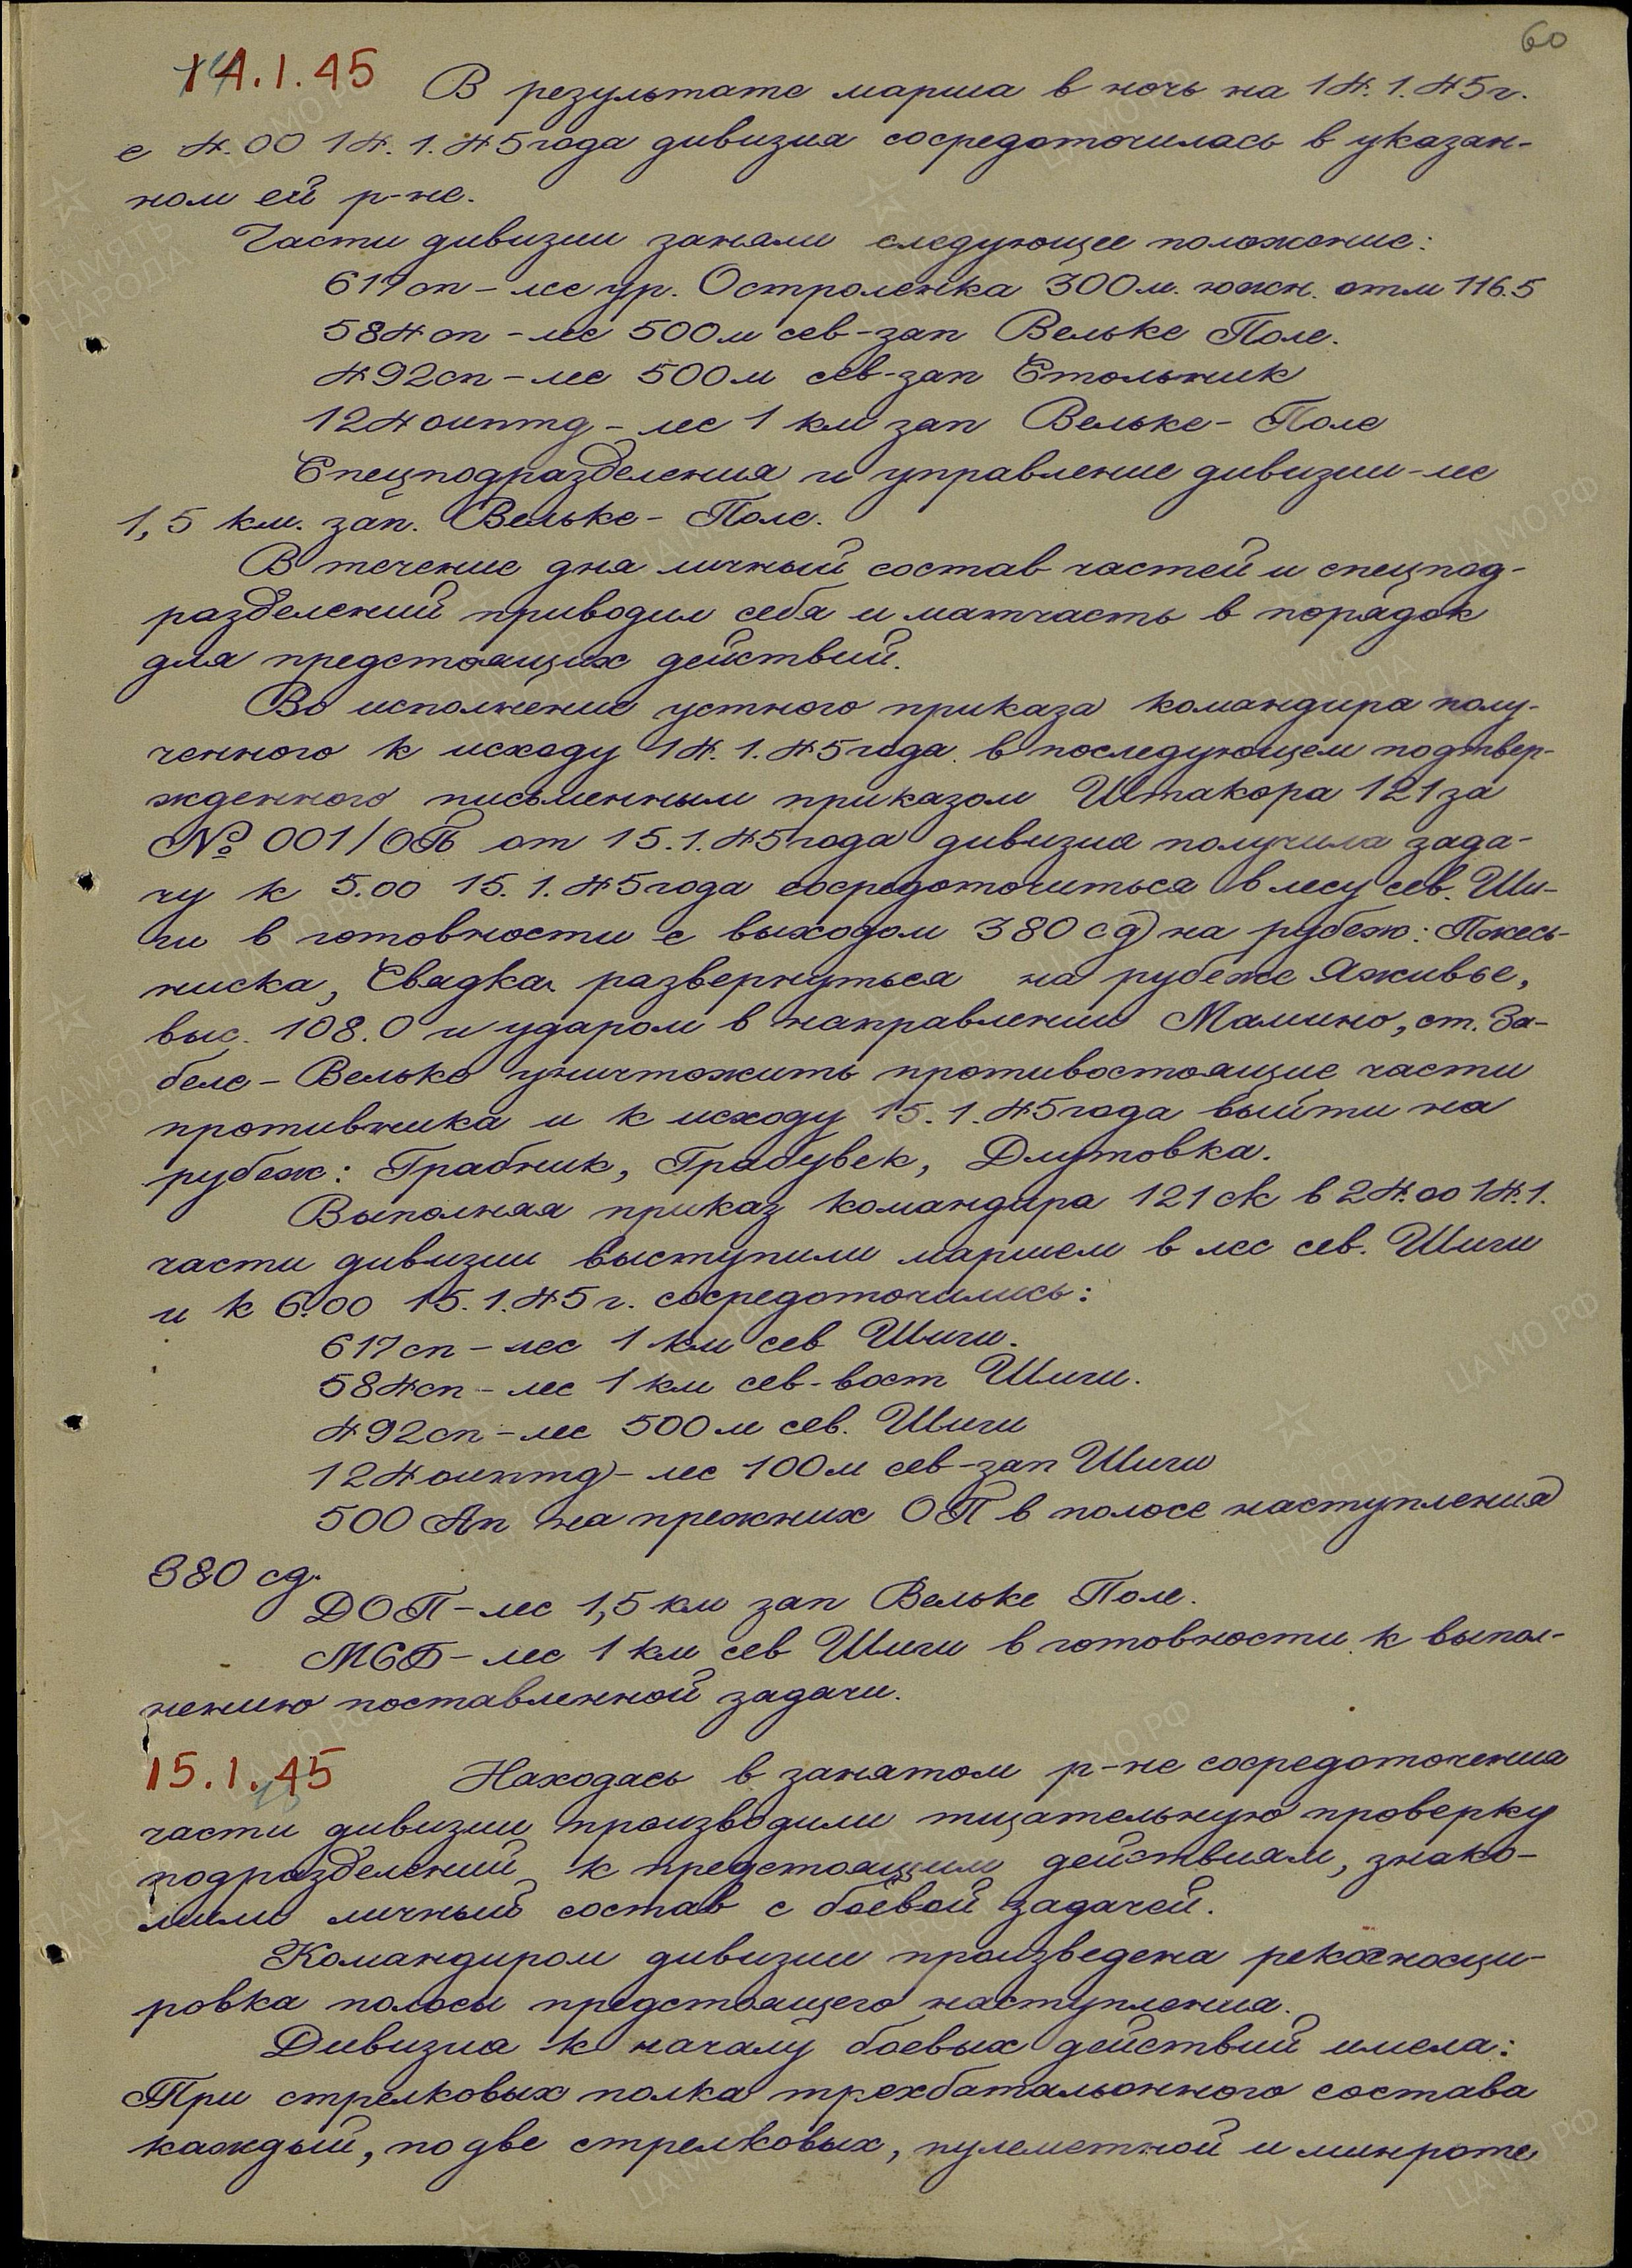 60
14.1.45 В результате марша в ночь на 14.1.45г.
с 4.00 14.1.45 года дивизия сосредоточилась в указан-
ном ей р-не.
Части дивизии заняли следующее положение:
617 сп - лес ур. Остроленка 300 м. южн. отм 116.5
584 сп - лес 500 м сев-зап Вельке Поле.
492 сп - лес 500 м сев-зап Стольник
124 оиптд - лес 1 км зап Вельке - Поле
Спецподразделения и управление дивизии - лес
1,5 км. зап. Вельке - Поле.
В течение дня личный состав частей и спецпод-
разделений приводил себя и матчасть в порядок
для предстоящих действий.
Во исполнение устного приказа командира полу-
ченного к исходу 14.1.45 года в последующем подтвер-
жденного письменным приказом Штакора 121 за
№ 001/ОП от 15.1.45 года дивизия получила зада-
чу к 5.00 15.1.45 года сосредоточиться в лесу сев. Ши-
ги в готовности с выходом 380 сд на рубеж: Пжесь-
ниска, Свядка развернуться на рубеже Яживье,
выс. 108.0 и ударом в направлении Мамино, ст. За-
беле - Вельке уничтожить противостоящие части
противника и к исходу 15.1.45 года выйти на
рубеж: Грабник, Грабувек, Длутовка.
Выполняя приказ командира 121 ск в 24.00 14.1.
части дивизии выступили маршем в лес сев. Шиги
и к 6.00 15.1.45 г. сосредоточились:
617 сп - лес 1 км сев Шиги.
584 сп - лес 1 км сев-вост Шиги.
492 сп - лес 500 м сев. Шиги
124 оиптд - лес 100 м сев-зап Шиги
500 Ап на прежних ОП в полосе наступления
380 сд.
ДОП - лес 1,5 км зап Вельке Поле.
МСБ - лес 1 км сев Шиги в готовности к выпол-
нению поставленной задачи.
15.1.45 Находясь в занятом р-не сосредоточения
части дивизии производили тщательную проверку
подразделений к предстоящим действиям, знако-
мили личный состав с боевой задачей.
Командиром дивизии произведена рекогносци-
ровка полосы предстоящего наступления.
Дивизия к началу боевых действий имела:
Три стрелковых полка трехбатальонного состава
каждый, по две стрелковых, пулеметной и минроте